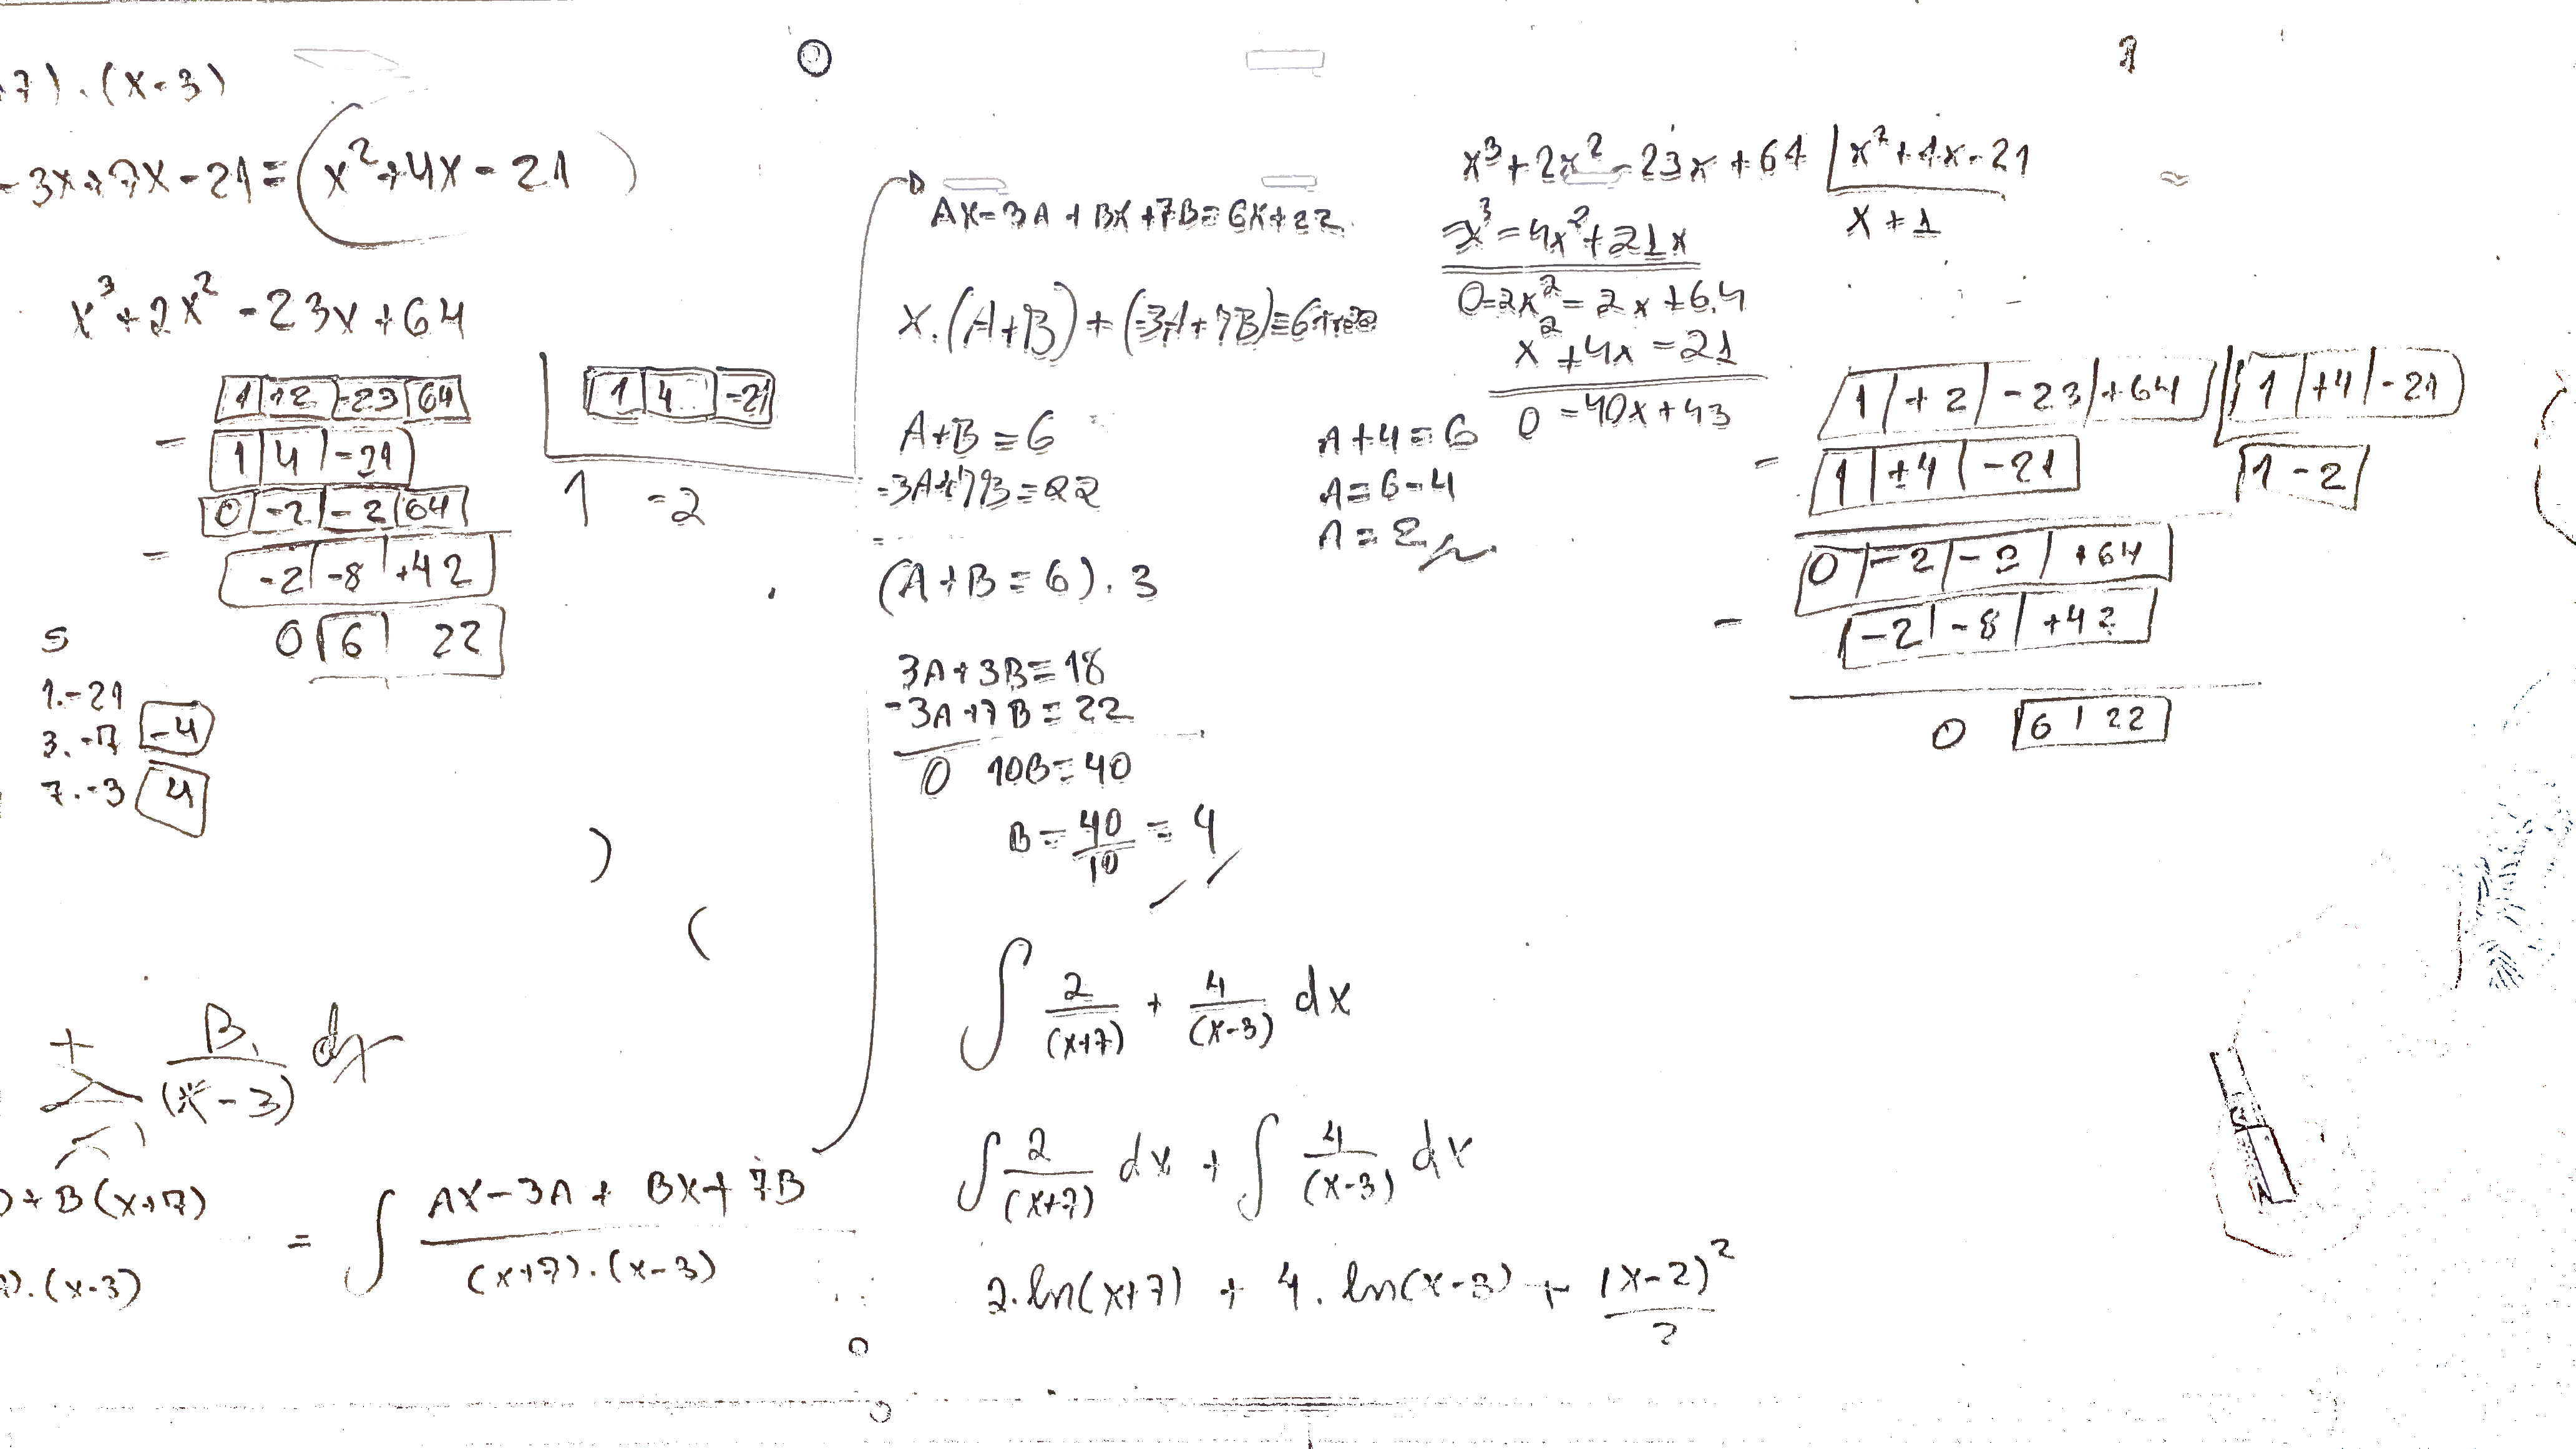 7).(x-3)
-3x+7x-21=(x²+4x-21)
x³+2x²-23x+64
1 +2 -23 64 | 1 4 -21
- 1 4 -21
1 -2
0 -2 -2 64
- -2 -8 +42
0 6 22
5
1.-21
3.-7 -4
7.-3 4
+ B/(x-3) dx
)+B(x+7)
).(x-3)
= ∫ (Ax-3A+Bx+7B)/((x+7).(x-3))
Ax-3A+Bx+7B=6x+22
x.(A+B)+(-3A+7B)=
A+B=6
-3A+7B=22
(A+B=6).3
3A+3B=18
-3A+7B=22
0 10B=40
B=40/10=4
A+4=6
A=6-4
A=2
∫ 2/(x+7) + 4/(x-3) dx
∫ 2/(x+7) dx + ∫ 4/(x-3) dx
2.ln(x+7) + 4.ln(x-3) + (x-2)²/2
x³+2x²-23x+64 | x²+4x-21
x+1
-x³-4x²+21x
0-2x²-2x+64
x²+4x-21
0-40x+43
1 +2 -23 +64 | 1 +4 -21
- 1 +4 -21
1 -2
0 -2 -2 +64
- -2 -8 +42
0 6 22